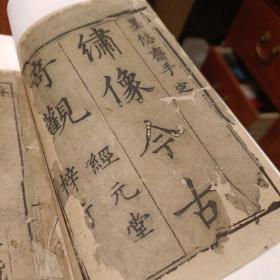 墨憨齋手定
繡像今古
奇觀
經元堂
梓行